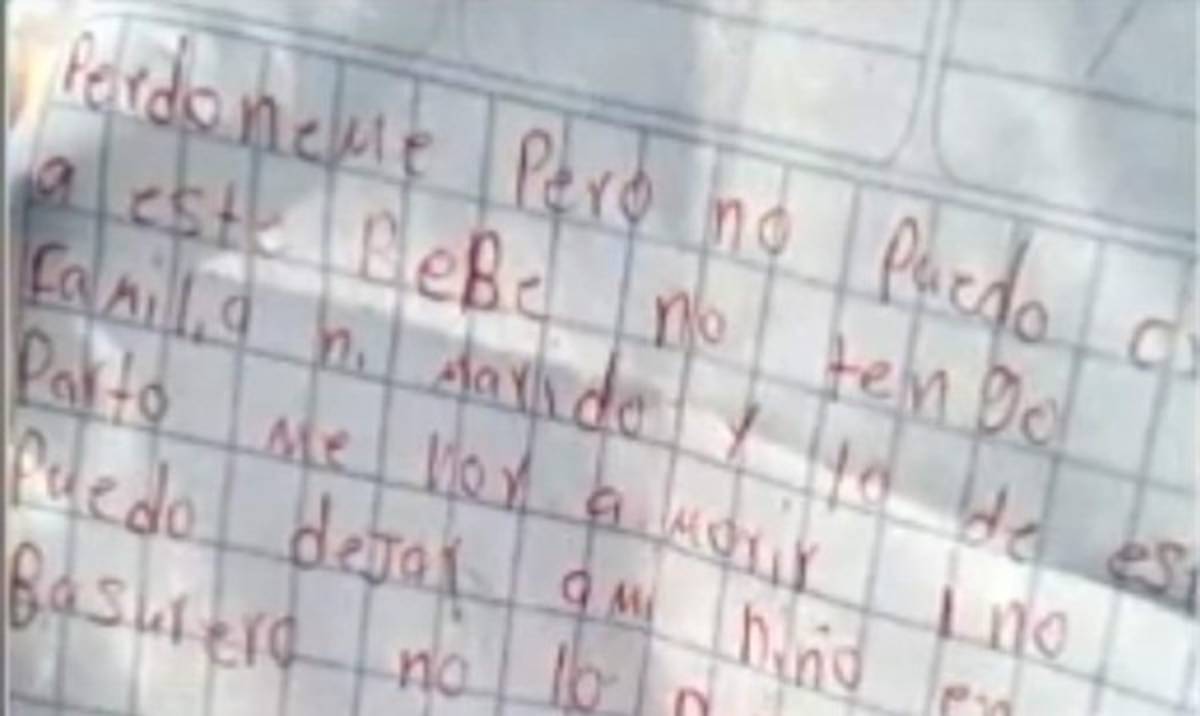 Perdoneme Pero no Puedo
a este BeBe no tengo
familia ni marido y yo de
Parto me voy a morir i no
Puedo dejar ami niño en
Basurero no lo